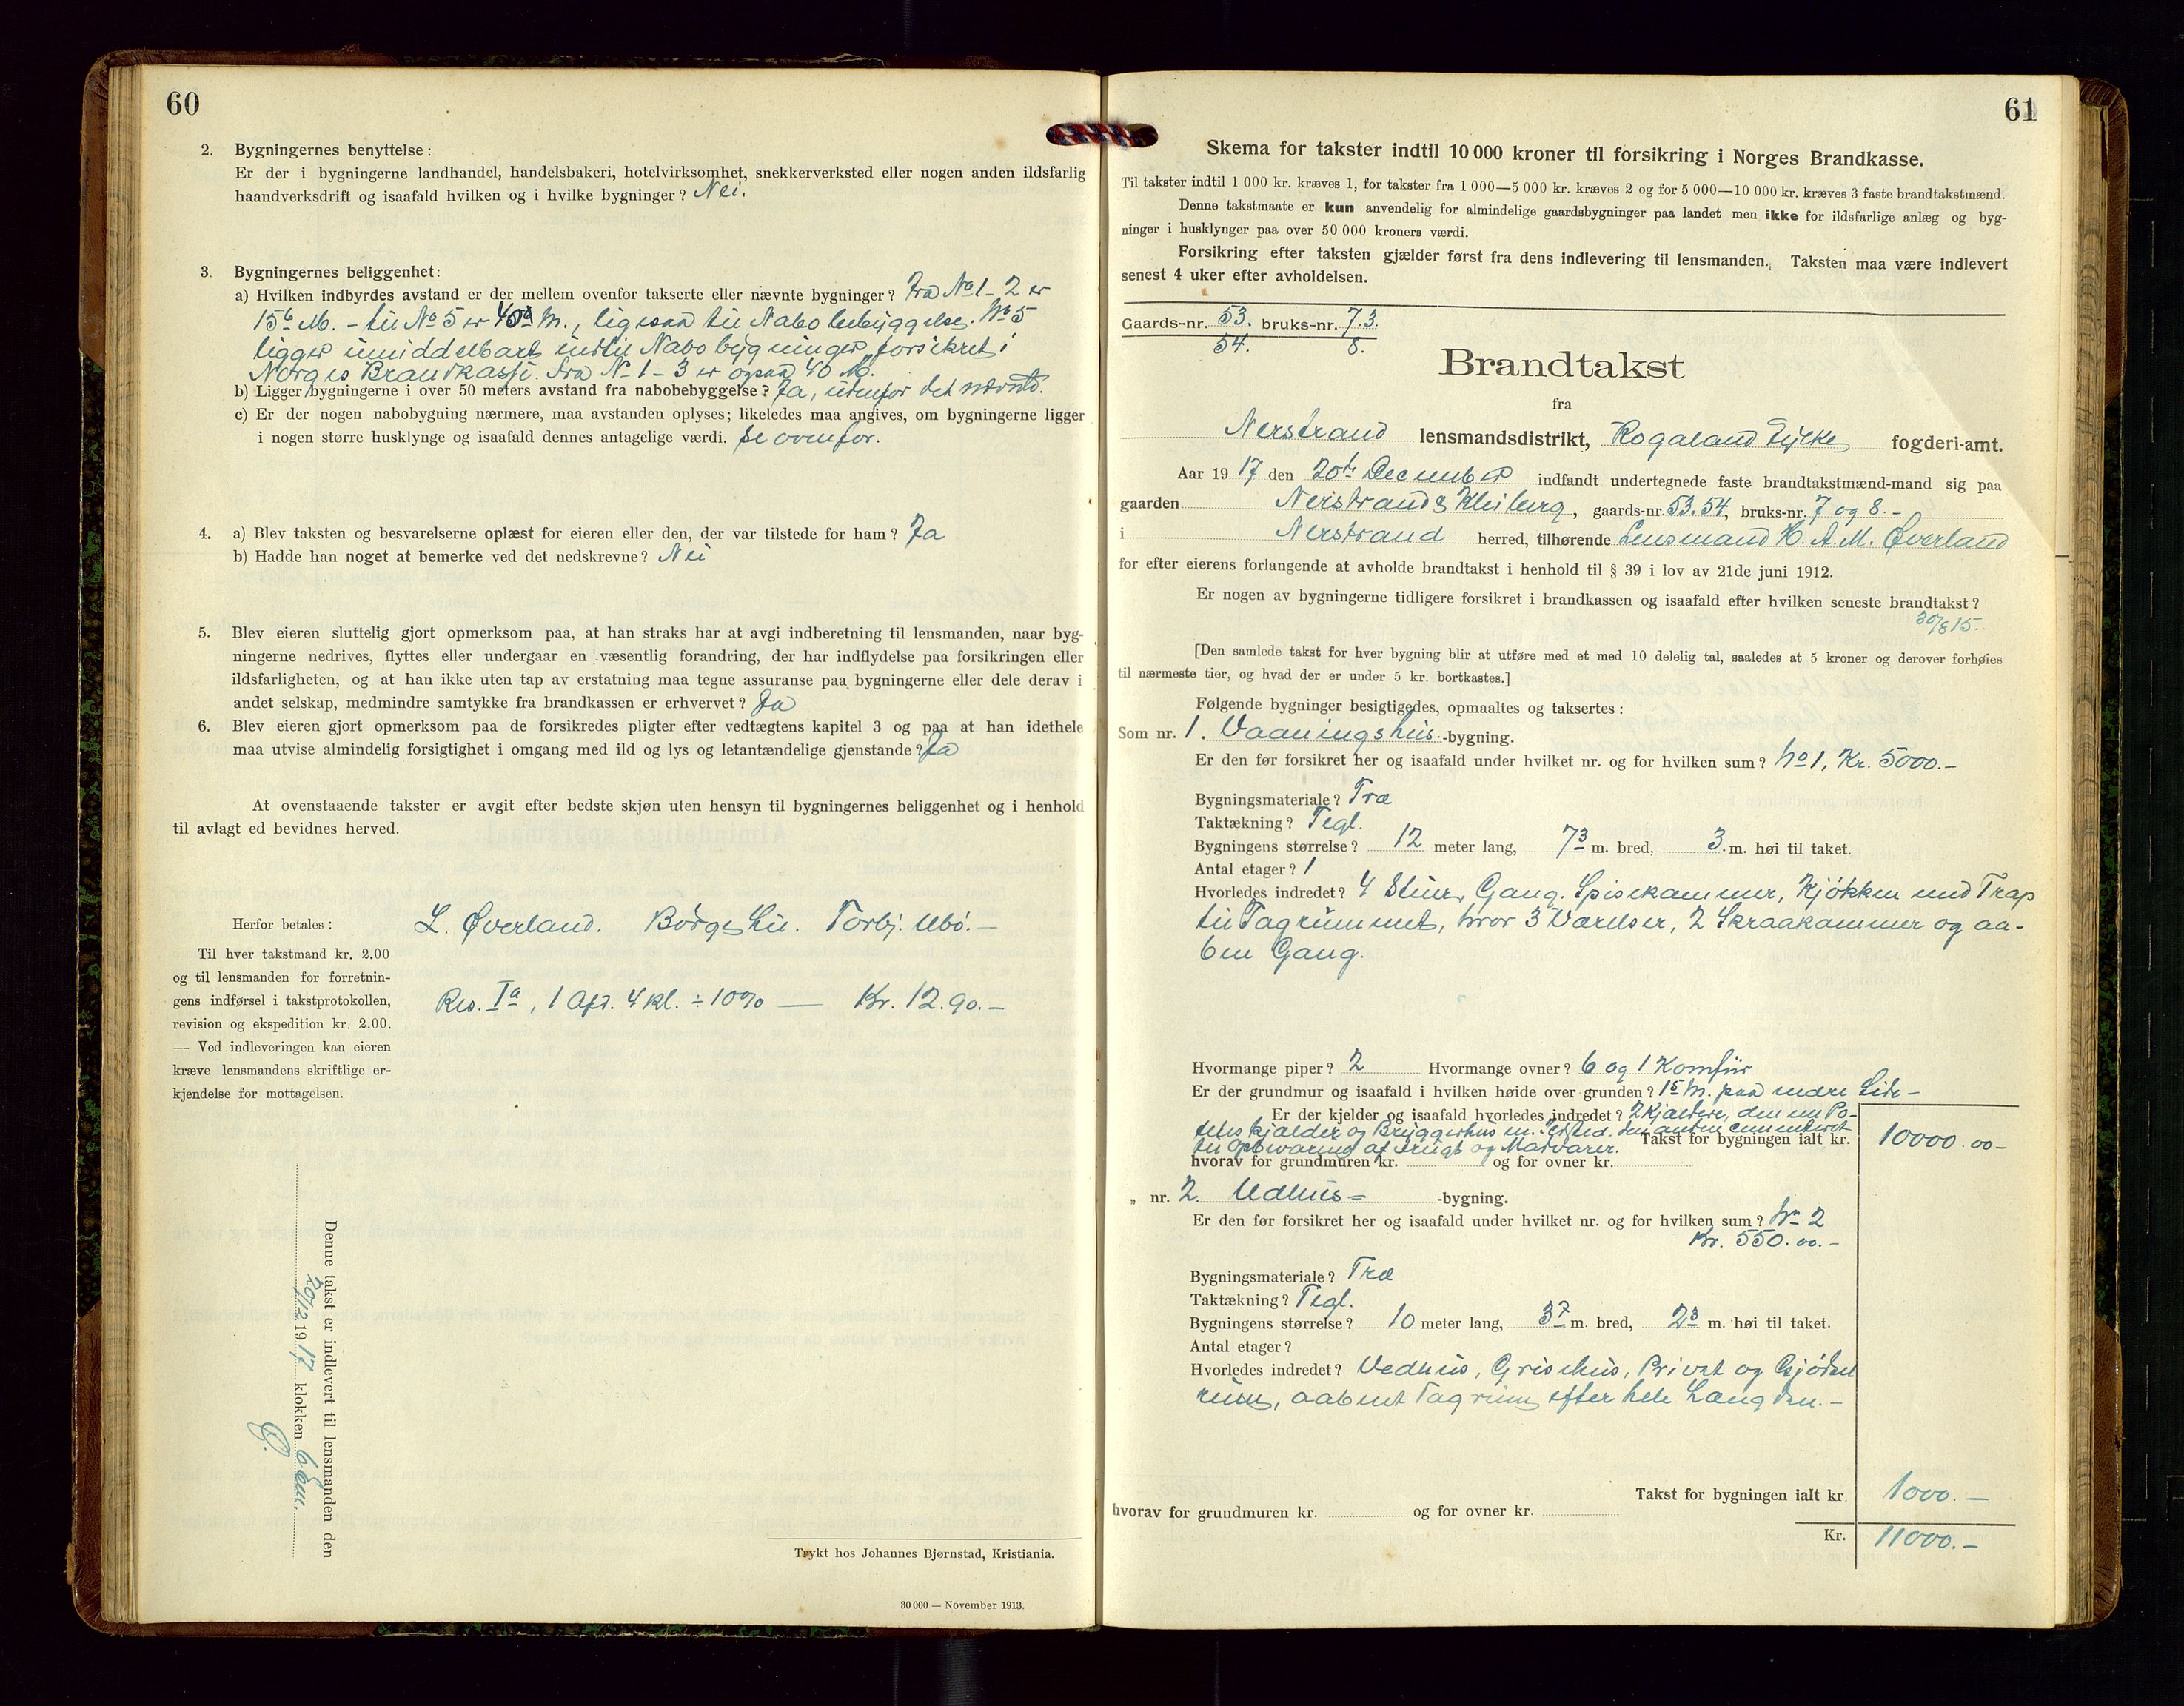 60
2. Bygningernes benyttelse:
Er der i bygningerne landhandel, handelsbakeri, hotelvirksomhet, snekkerverksted eller nogen anden ildsfarlig
haandverksdrift og isaafald hvilken og i hvilke bygninger? Nei.
3. Bygningernes beliggenhet:
a) Hvilken indbyrdes avstand er der mellem ovenfor takserte eller nævnte bygninger? Fra No 1 - 2 er
15 M. - til No 5 er M., ligesaa til Nabobebyggelse. No 5
ligger umiddelbart indtil Nabobygninger forsikret i
Norges Brandkasse. Fra No 1 - 3 er ogsaa 40 M.
b) Ligger bygningerne i over 50 meters avstand fra nabobebyggelse? Ja, utenfor det nævnte.
c) Er der nogen nabobygning nærmere, maa avstanden oplyses; likeledes maa angives, om bygningerne ligger
i nogen større husklynge og isaafald dennes antagelige værdi. se ovenfor.
4. a) Blev taksten og besvarelserne oplæst for eieren eller den, der var tilstede for ham? Ja
b) Hadde han noget at bemerke ved det nedskrevne? Nei
5. Blev eieren sluttelig gjort opmerksom paa, at han straks har at avgi indberetning til lensmanden, naar byg-
ningerne nedrives, flyttes eller undergaar en væsentlig forandring, der har indflydelse paa forsikringen eller
ildsfarligheten, og at han ikke uten tap av erstatning maa tegne assuranse paa bygningerne eller dele derav i
andet selskap, medmindre samtykke fra brandkassen er erhvervet? Ja
6. Blev eieren gjort opmerksom paa de forsikredes pligter efter vedtægtens kapitel 3 og paa at han idethele
maa utvise almindelig forsigtighet i omgang med ild og lys og letantændelige gjenstande? Ja
At ovenstaaende takster er avgit efter bedste skjøn uten hensyn til bygningernes beliggenhet og i henhold
til avlagt ed bevidnes herved.
Herfor betales:
Til hver takstmand kr. 2.00
og til lensmanden for forretnin-
gens indførsel i takstprotokollen,
revision og ekspedition kr. 2.00.
— Ved indleveringen kan eieren
kræve lensmandens skriftlige er-
kjendelse for mottagelsen.
L. Øverland. Børge Lie. Torbj. Ubø. -
Res. Ia, 1 Afr. 4 kl. ÷ 10% — Kr. 12.90. -
Denne takst er indlevert til lensmanden den
20/12 1917 klokken 6 Em.
Ø.
Trykt hos Johannes Bjørnstad, Kristiania.
30 000 — November 1913.
61
Skema for takster indtil 10 000 kroner til forsikring i Norges Brandkasse.
Til takster indtil 1 000 kr. kræves 1, for takster fra 1 000—5 000 kr. kræves 2 og for 5 000—10 000 kr. kræves 3 faste brandtakstmænd.
Denne takstmaate er kun anvendelig for almindelige gaardsbygninger paa landet men ikke for ildsfarlige anlæg og byg-
ninger i husklynger paa over 50 000 kroners værdi.
Forsikring efter taksten gjælder først fra dens indlevering til lensmanden. Taksten maa være indlevert
senest 4 uker efter avholdelsen.
Gaards-nr. 53. bruks-nr. 7.3.
54. 8.
Brandtakst
fra
Nerstrand lensmandsdistrikt, Rogaland Fylke fogderi-amt.
Aar 1917 den 20de December indfandt undertegnede faste brandtakstmænd-mand sig paa
gaarden Nerstrand & Kleiberg, gaards-nr. 53.54, bruks-nr. 7 og 8. -
i Nerstrand herred, tilhørende Lensmand H. A. M. Øverland
for efter eierens forlangende at avholde brandtakst i henhold til § 39 i lov av 21de juni 1912.
Er nogen av bygningerne tidligere forsikret i brandkassen og isaafald efter hvilken seneste brandtakst?
30/8 15.
[Den samlede takst for hver bygning blir at utføre med et med 10 delelig tal, saaledes at 5 kroner og derover forhøies
til nærmeste tier, og hvad der er under 5 kr. bortkastes.]
Følgende bygninger besigtigedes, opmaaltes og taksertes:
Som nr. 1. Vaaningshus. -bygning.
Er den før forsikret her og isaafald under hvilket nr. og for hvilken sum? No 1, Kr. 5000. -
Bygningsmateriale? Træ
Taktækning? Tegl.
Bygningens størrelse? 12 meter lang, 7 3 m. bred, 3. m. høi til taket.
Antal etager? 1
Hvorledes indredet? 4 Stuer, Gang. Spisekammer, Kjøkken med Trap
til Tagrummet, hvor 3 Værelser, 2 Skraakammer og aa-
ben Gang.
Hvormange piper? 2 Hvormange ovner? 6 og 1 Komfür
Er der grundmur og isaafald i hvilken høide over grunden? 1 5 M. paa nedre Side -
Er der kjelder og isaafald hvorledes indredet? 2 Kjældere, den en Po-
teteskjælder og Bryggerhus m. Ildsted. den anden cementeret
til Opbevaring af Frugt og Madvarer. Takst for bygningen ialt kr. 10000.00 -
hvorav for grundmuren kr. og for ovner kr.
„ nr. 2. Udhus = -bygning.
Er den før forsikret her og isaafald under hvilket nr. og for hvilken sum? No 2
Kr. 550.00. -
Bygningsmateriale? Træ
Taktækning? Tegl.
Bygningens størrelse? 10 meter lang, 3 7 m. bred, 2 3 m. høi til taket.
Antal etager?
Hvorledes indredet? Vedhus, Grisehus, Privet og Gjødsel
rum, aabent Tagrum efter hele Længden. -
Takst for bygningen ialt kr. 1000. -
hvorav for grundmuren kr. og for ovner kr.
Kr. 11000. -